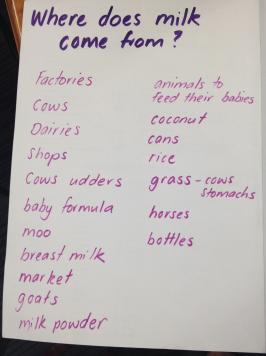 Where does milk
come from?
Factories
Cows
Dairies
Shops
Cows udders
baby formula
moo
breast milk
market
goats
milk powder
animals to
feed their babies
coconut
cans
rice
grass - cows
stomachs
horses
bottles